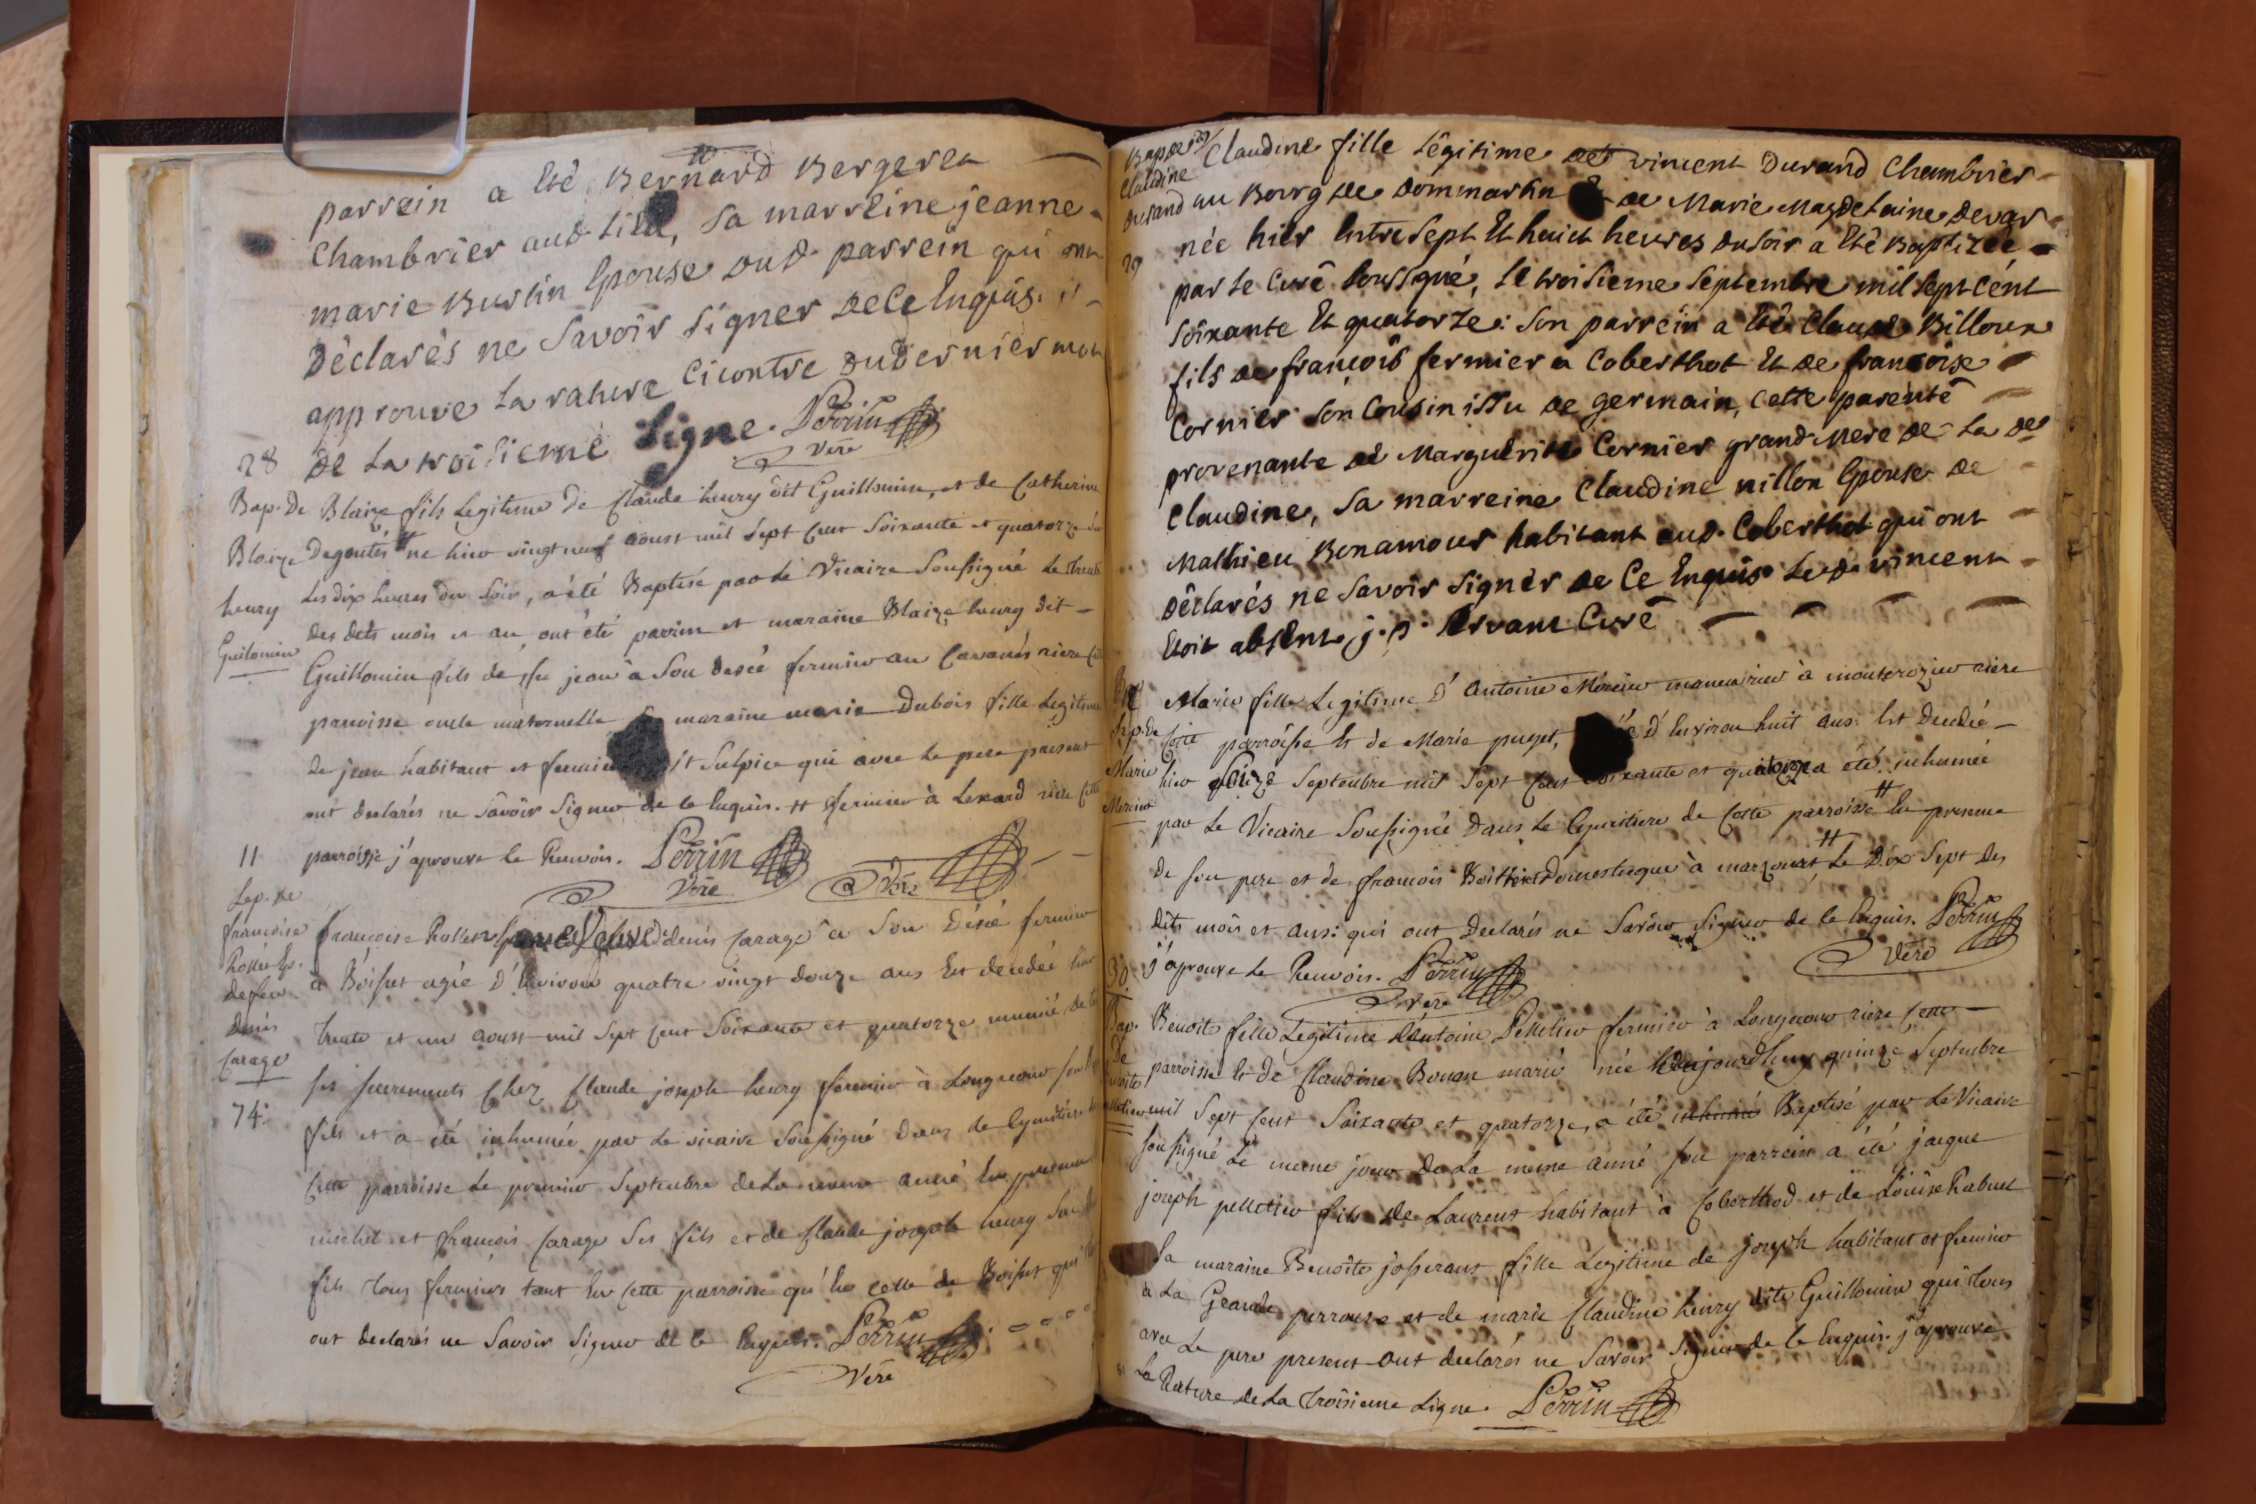 parrein a Eté Bernard Bergeret
chambrier aud lieu, sa marreine jeanne
marie Burtin Epouse dud. parrein qui ont
Déclarés ne savoir signer de ce Enquis. j'
approuve la rature cicontre du dernier mot
28
de la troisieme Ligne. Perrin
vere
Bap. De
Blaize
henry
Guilomin
Blaize fils Legitime de Claude henry dit Guillomin, et de Catherine
Degoutés # né hier vingt neuf aoust mil sept cent soixante et quatorze
Les dix heures du soir, a été Baptisé par le Vicaire Soussigné le trente
des dets mois et an ont été parrein et maraine Blaize henry dit
Guillomin fils de feu jean à son décé fermier au rière
parroisse oncle maternelle maraine marie Dubois fille Legitime
de jean habitant et fermier St Sulpice qui avec le pere present
ont declarés ne sâvoir Signer de ce Enquis. # fermier à Lexard rière cette
parroisse j'aprouve le Renvois. Perrin
Vere
Vere
11
Sep. de
francoise
defeu
denis
Carage
74.
francoise veuve denis Carage à son Décé fermier
à Boisset agée D'Environ quatre vingt douze ans Est decedée hier
trente et un aoust mil sept cent Soixante et quatorze munie de
ses sacrements chez Claude joseph henry fermier à Longecour son
fils et a été inhumée par le vicaire Soussigné dans le Cymetière
cette parroisse Le premier Septembre de La meme année En presence
michel et francois Carage ses fils et de Claude joseph henry
fils tous fermiers tant En cette parroisse qu'En celle de Boisset qui
ont declarés ne Savoir Signer de ce Enquis. Perrin
Vere
Bap. de
Claudine
Durand
29
Claudine fille Légitime det vincent Durand chambrier
au Bourg de Dommartin & de Marie Magdelaine Devar
née hier Entre sept Et huict heures du soir a Eté Baptizée
par le curé soussigné, Le troisieme septembre mil sept cént
soixante Et quatorze: son parrein a Eté claude Billoux
fils de françois fermier a Coberthot Et de francoise
Cornier son Cousin issu de germain, cette parenté
provenante de Marguerite Cornier grand Mere de La de
claudine, sa marreine claudine nillon Epouse de
Mathieu Bonamour habitant aud. Coberthot qui ont
Déclarés ne savoir signer de Ce Enquis Le d. vincent
Etoit absent, j. p. Ervant Curé
Sep. de
Marie
Mercier
Marie fille Legitime D'antoine Mercier manouvrier à monterozier rière
Cette parroisse Et de Marie puget, agée D'Environ huit ans Est Decedée
hier Seize Septembre mil Sept Cent Soixante et quatorze a été inhumée
par le Vicaire Soussigné Dans le Cymitiere de Cette parroisse # En presence
de son pere et de francois Boittier Domestique à marcourt # Le Dix Sept des
dits mois et ans: qui ont Declarés ne Savoir Signer de ce Enquis. Perrin
Vere
j'aprouve le Renvois. Perrin
Vere
30
Bap.
De
Benoite
Pelletier
Benoite fille Legitime D'Antoine Pelletier fermier à Longecour rière cette
parroisse Et de Claudine Bonan marié née aujourdhuy quinze Septembre
mil Sept Cent Soixante et quatorze, a été inhumé Baptisé par Le Vicaire
Soussigné Le meme jour de La meme anné son parrein a été jacque
joseph pelletier fils de Laurent habitant à Coberthod et de Louise Rabuel
Sa maraine Benoite josserant fille Legitime de joseph habitant et fermier
à La Grande perrouse et de marie Claudine henry dite Guillomin qui tous
avec Le pere present ont declarés ne Savoir Signer de ce Enquis. j'aprouve
La Rature de La troisieme Ligne. Perrin